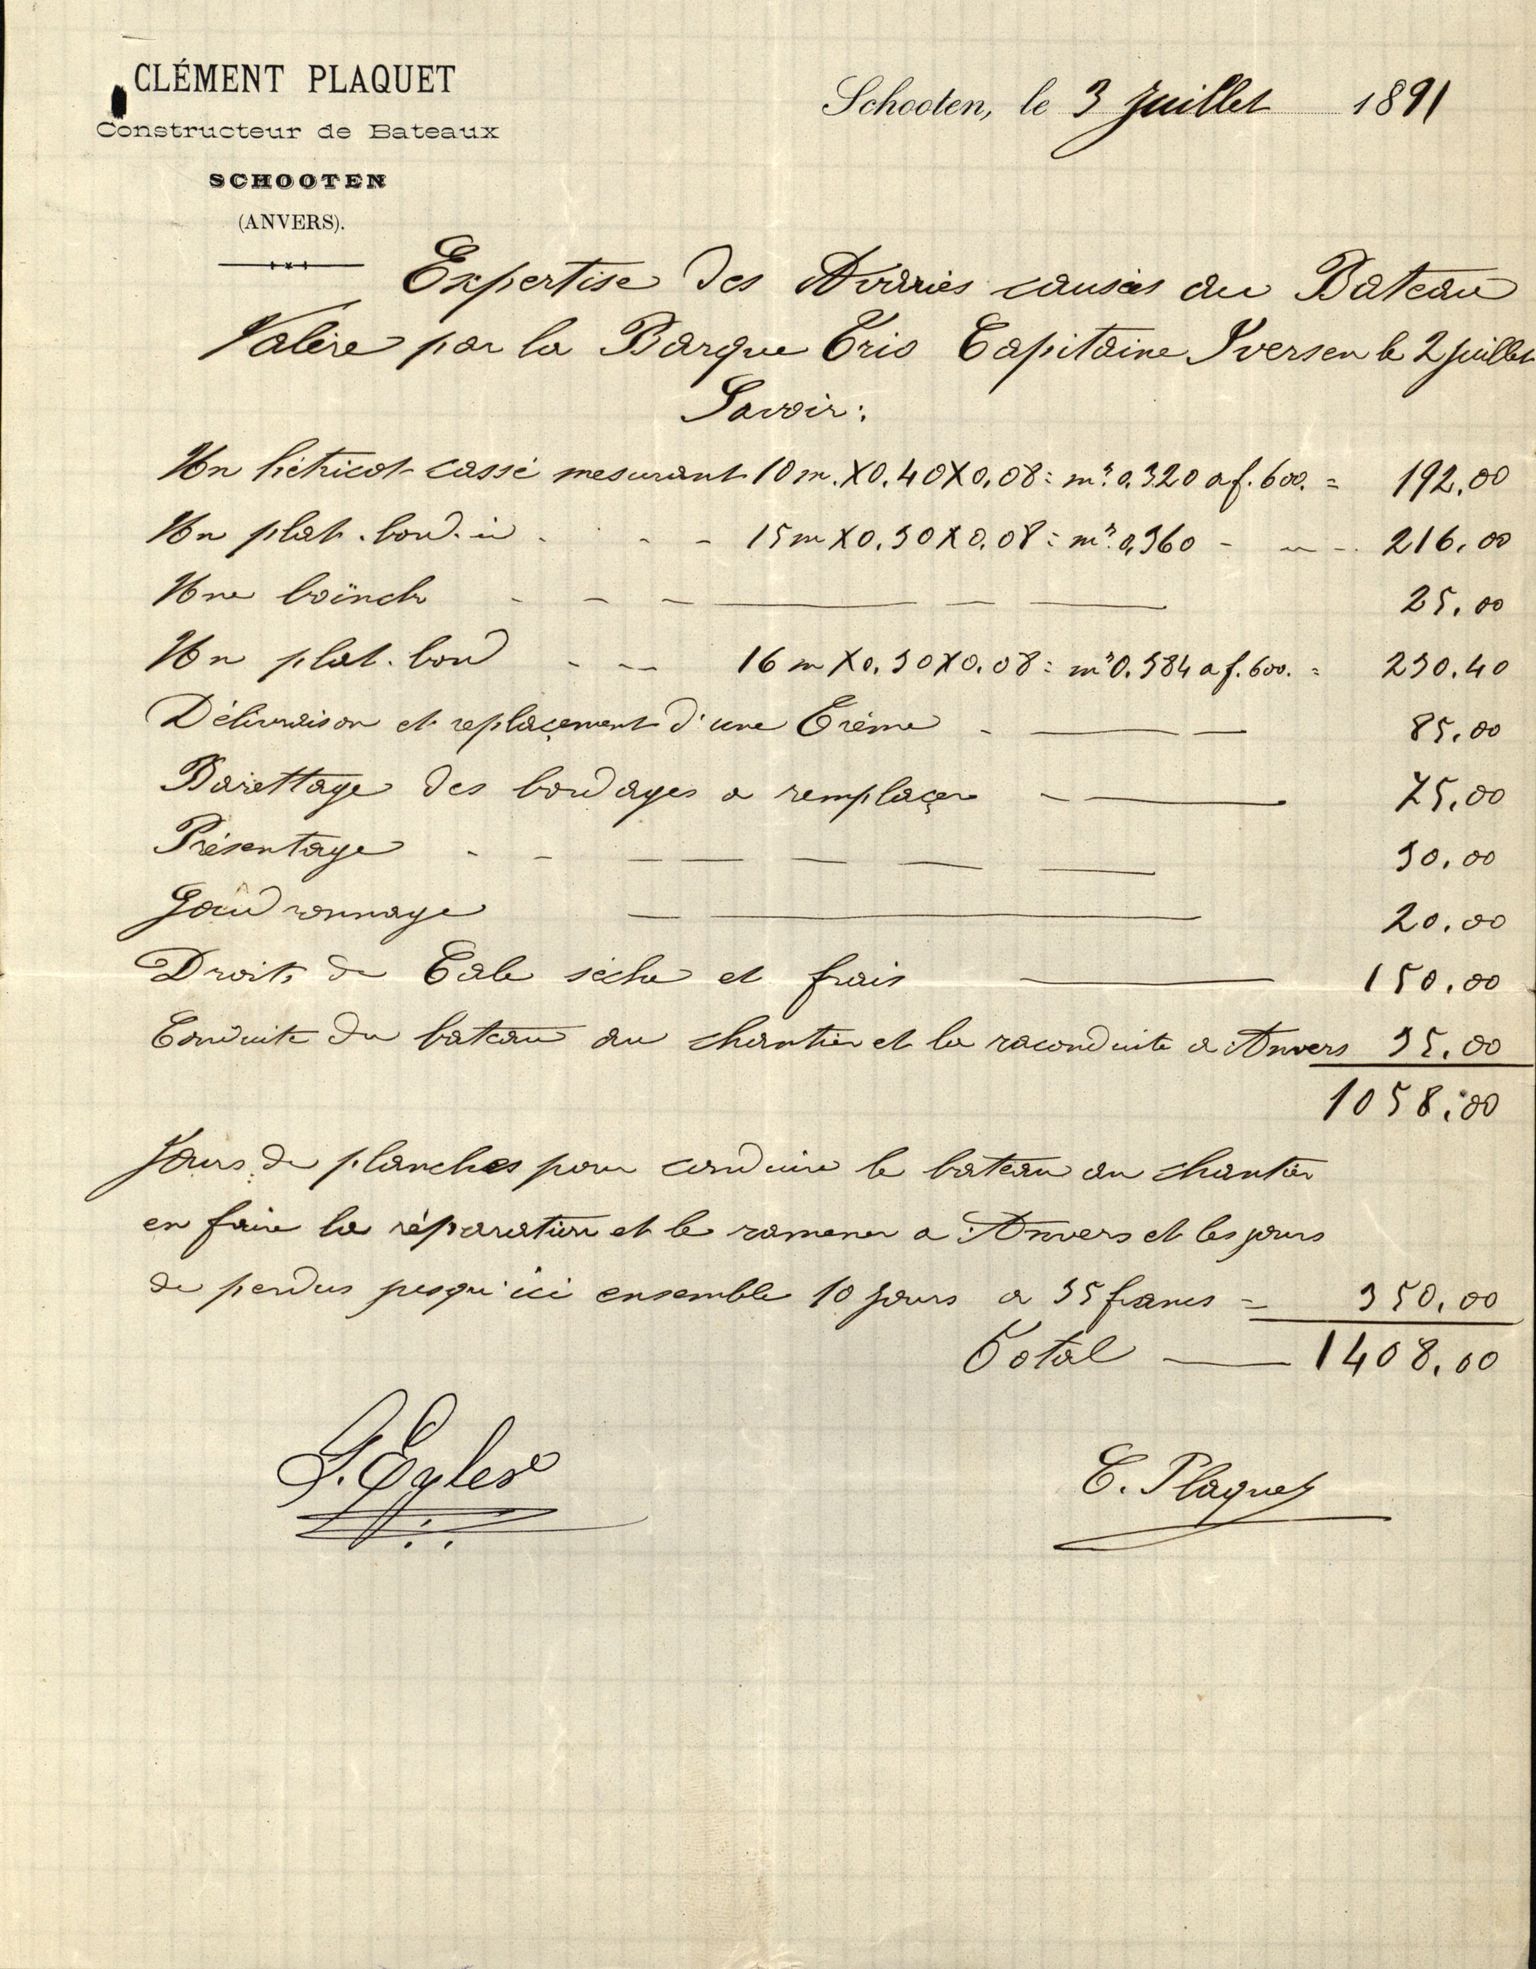 CLÉMENT PLAQUET
Constructeur de Bateaux
SCHOOTEN
(ANVERS).
Schooten, le 3 juillet 1891
Expertise des Avaries causées au Bateau
Valère par la Barque Trio Capitaine Iversen le 2 juillet
Savoir:
Un hétricot cassé mesurant 10 m. X 0,40 X 0,08 = m³ 0,320 a f. 600. = 192,00
Un plat-bord id - - - 15 m X 0,30 X 0,08 = m³ 0,360 - " - 216,00
Une - - - 25,00
Un plat-bord - - - 16 m X 0,30 X 0,08 = m³ 0,384 a f. 600. = 230,40
Délivraison et replaçement d'une Trême - 85,00
Barettage des bordages a remplaçer - 75,00
Présentage - - - 30,00
Goudronnage - 20,00
Droits de Cale sêche et frais - 150,00
Conduite du bateau au chantier et la raconduite a Anvers 35,00
1058,00
Jours de planches pour conduire le bateau au chantier
en faire la réparation et le ramener a Anvers et les jours
de perdus jusqu'ici ensemble 10 jours a 35 francs = 350,00
Total - 1408,00
C. Plaquet